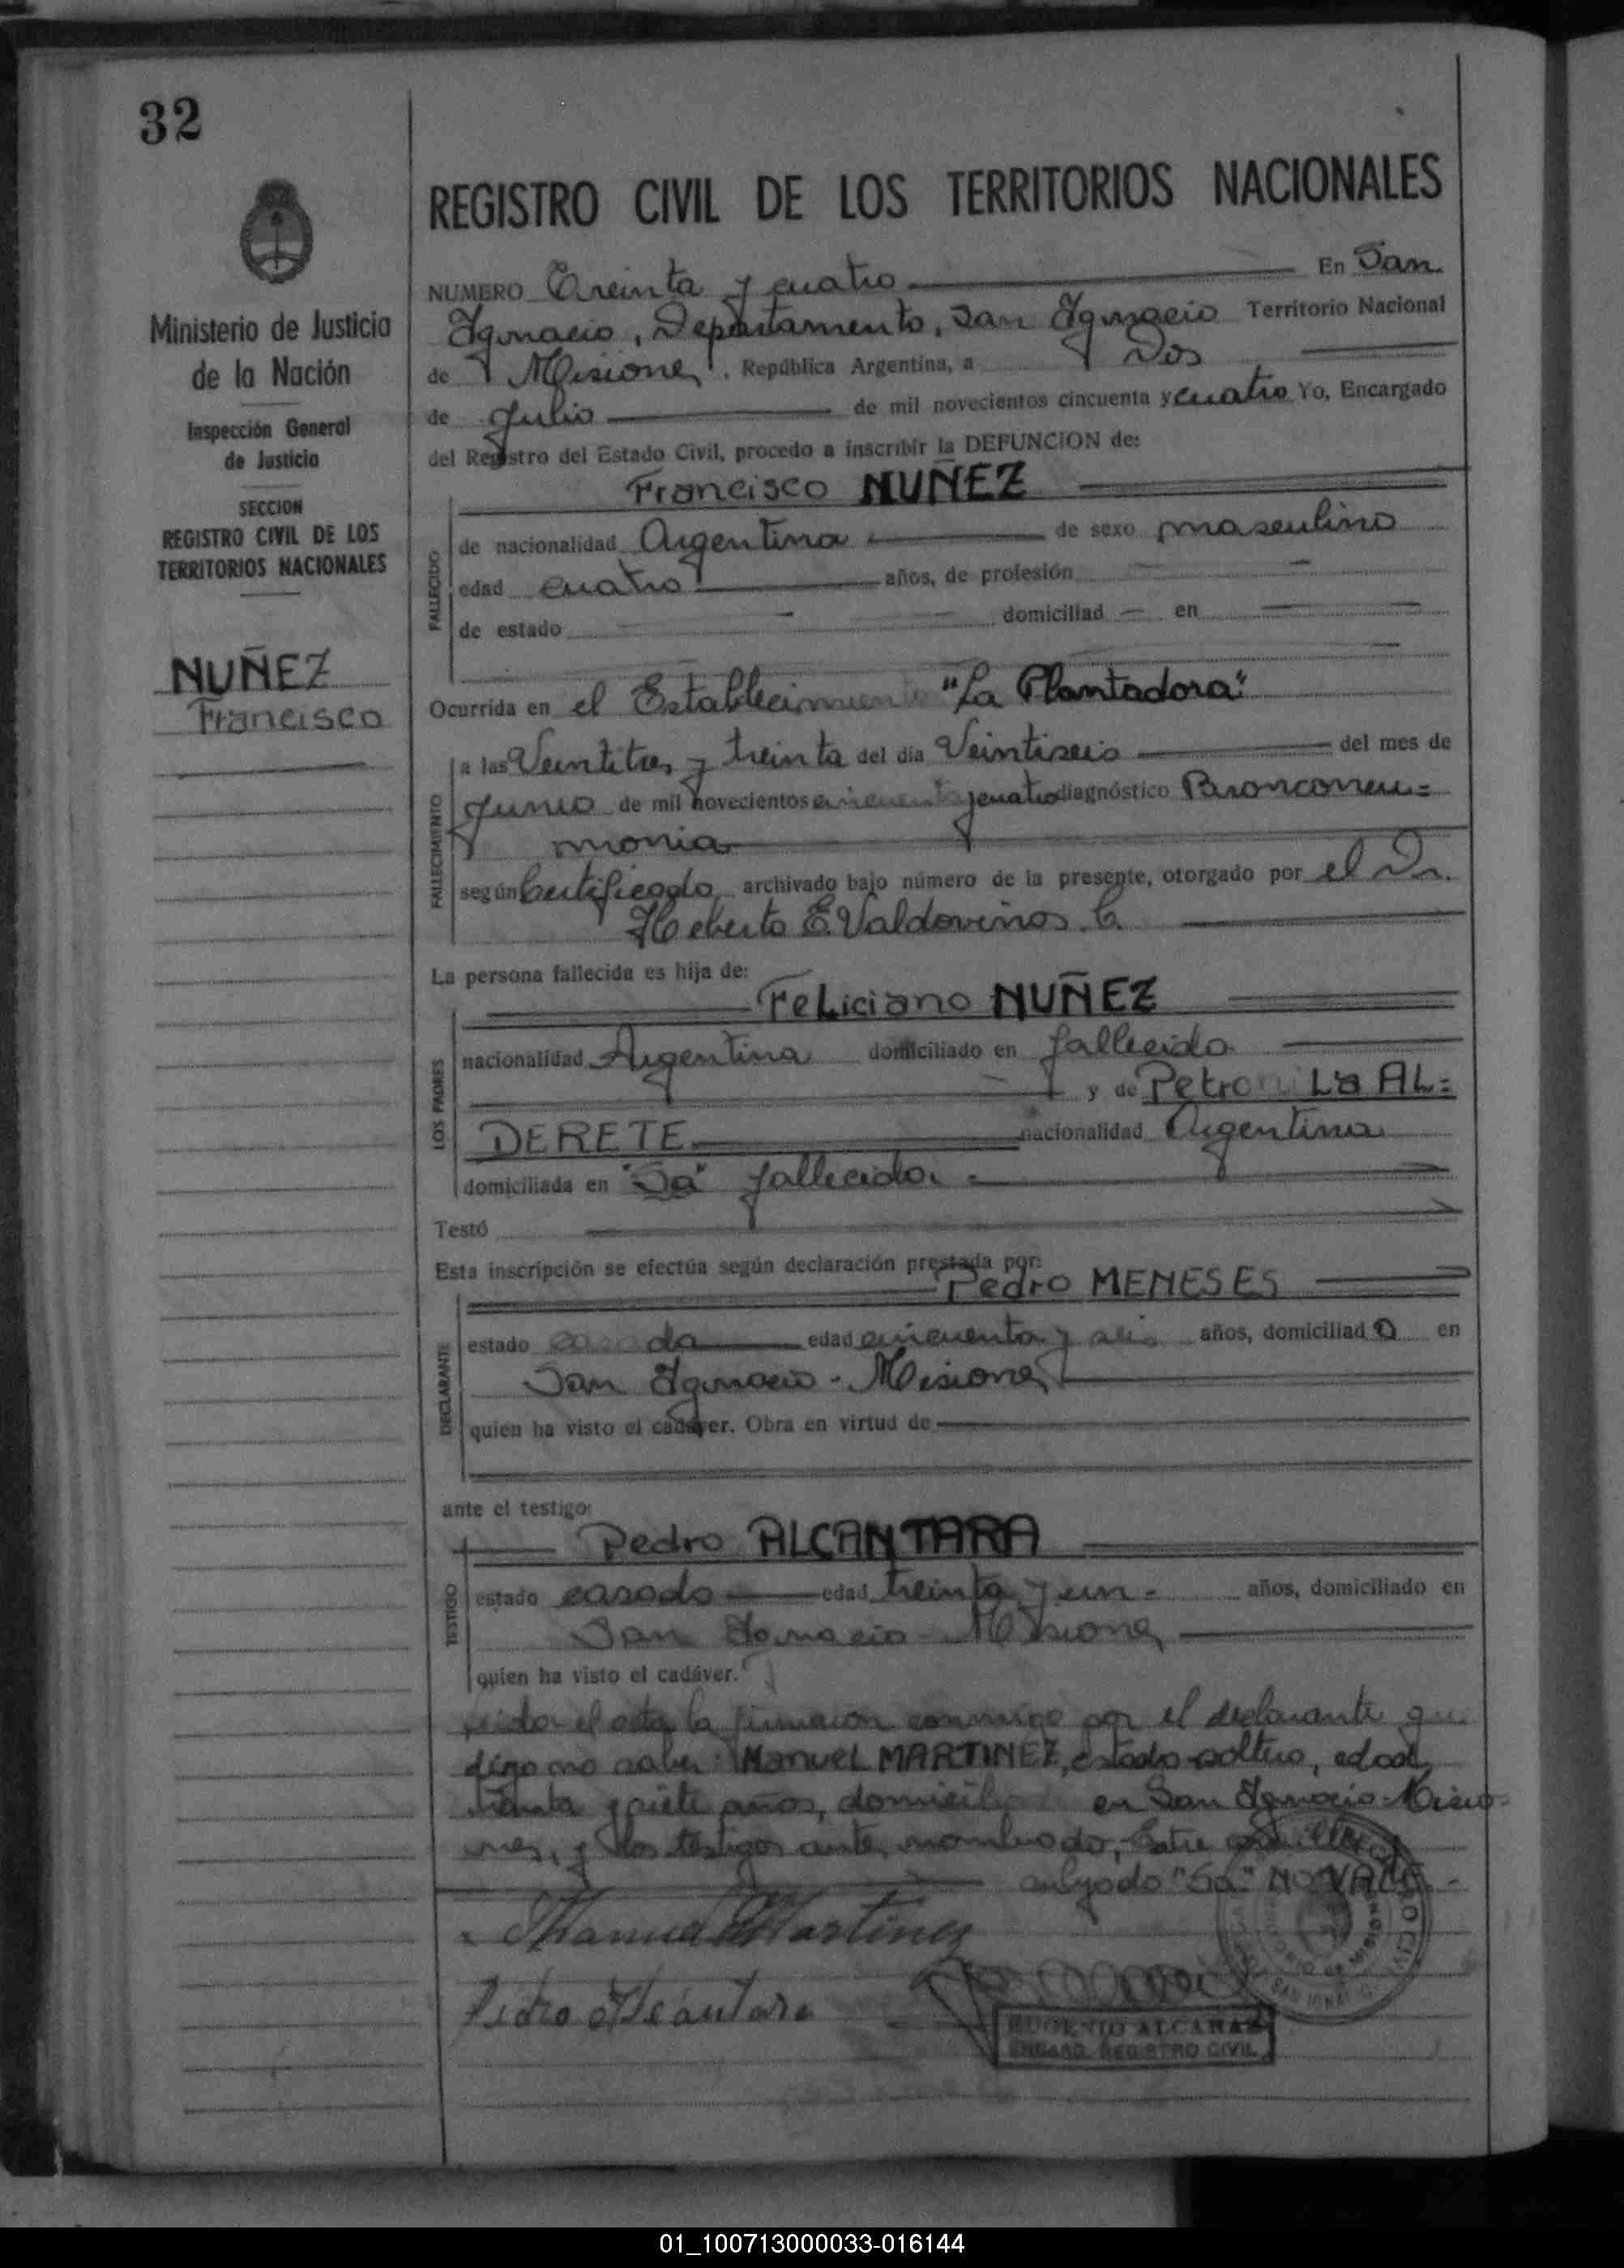 32
Ministerio de Justicia
de la Nación
Inspección General
de Justicia
SECCION
REGISTRO CIVIL DE LOS
TERRITORIOS NACIONALES
NUÑEZ
Francisco
REGISTRO CIVIL DE LOS TERRITORIOS NACIONALES
NUMERO Treinta y cuatro En San
Ignacio, Departamento, San Ignacio Territorio Nacional
de Misiones, República Argentina, a Dos
de Julio de mil novecientos cincuenta y cuatro Yo, Encargado
del Registro del Estado Civil, procedo a inscribir la DEFUNCION de:
Francisco NUÑEZ
FALLECIDO
de nacionalidad Argentina de sexo masculino
edad cuatro años, de profesión
de estado domiciliad en
Ocurrida en el Establecimiento "La Plantadora"
FALLECIMIENTO
a las Veintitres y treinta del día Veintiseis del mes de
Junio de mil novecientos cincuenta y cuatro diagnóstico Bronconeu=
monia
según Certificado archivado bajo número de la presente, otorgado por el Dr.
Heberto E. Valdovinos. C.
La persona fallecida es hija de:
Feliciano NUÑEZ
LOS PADRES
nacionalidad Argentina domiciliado en fallecido
y de Petronila AL=
DERETE nacionalidad Argentina
domiciliada en "Sa" fallecida. -
Testó
Esta inscripción se efectúa según declaración prestada por:
Pedro MENESES
DECLARANTE
estado casado edad cincuenta y seis años, domiciliad o en
San Ignacio - Misiones
quien ha visto el cadáver. Obra en virtud de
ante el testigo:
Pedro ALCANTARA
TESTIGO
estado casado edad treinta y un - años, domiciliado en
San Ignacio - Misiones
quien ha visto el cadáver.
Leida el acta la firmaron conmigo por el declarante que
dijo no saber: Manuel MARTINEZ, estado soltero, edad
treinta y siete años, domiciliado en San Ignacio - Misio-
nes, y los testigos antes nombrado,
"Sa" NO VALE. -
Manuel Martinez
Pedro Alcantara
EUGENIO ALCARAZ
ENCARG. REGISTRO CIVIL
01_100713000033-016144